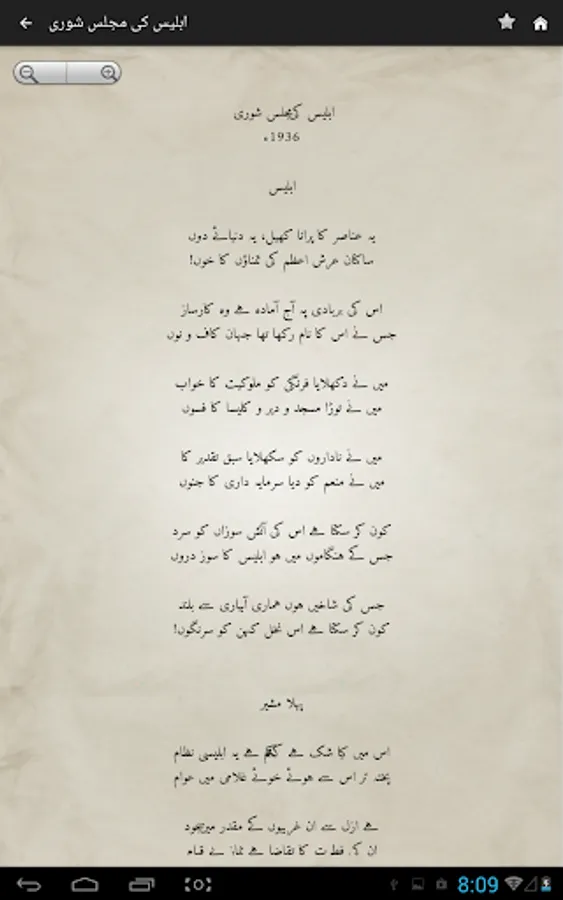 ابلیس کی مجلس شوری
ابلیس کی مجلس شوری
1936ء
ابلیس
یہ عناصر کا پرانا کھیل، یہ دنیائے دوں
ساکنان عرش اعظم کی تمناؤں کا خوں!
اس کی بربادی پہ آج آمادہ ہے وہ کارساز
جس نے اس کا نام رکھا تھا جہان کاف و نوں
میں نے دکھلایا فرنگی کو ملوکیت کا خواب
میں نے توڑا مسجد و دیر و کلیسا کا فسوں
میں نے ناداروں کو سکھلایا سبق تقدیر کا
میں نے منعم کو دیا سرمایہ داری کا جنوں
کون کر سکتا ہے اس کی آتش سوزاں کو سرد
جس کے ہنگاموں میں ہو ابلیس کا سوز دروں
جس کی شاخیں ہوں ہماری آبیاری سے بلند
کون کر سکتا ہے اس نخل کہن کو سرنگوں!
پہلا مشیر
اس میں کیا شک ہے کہ محکم ہے یہ ابلیسی نظام
پختہ تر اس سے ہوئے خوئے غلامی میں عوام
ہے ازل سے ان غریبوں کے مقدر میں سجود
ان کی فطرت کا تقاضا ہے نماز بے قیام
8:09